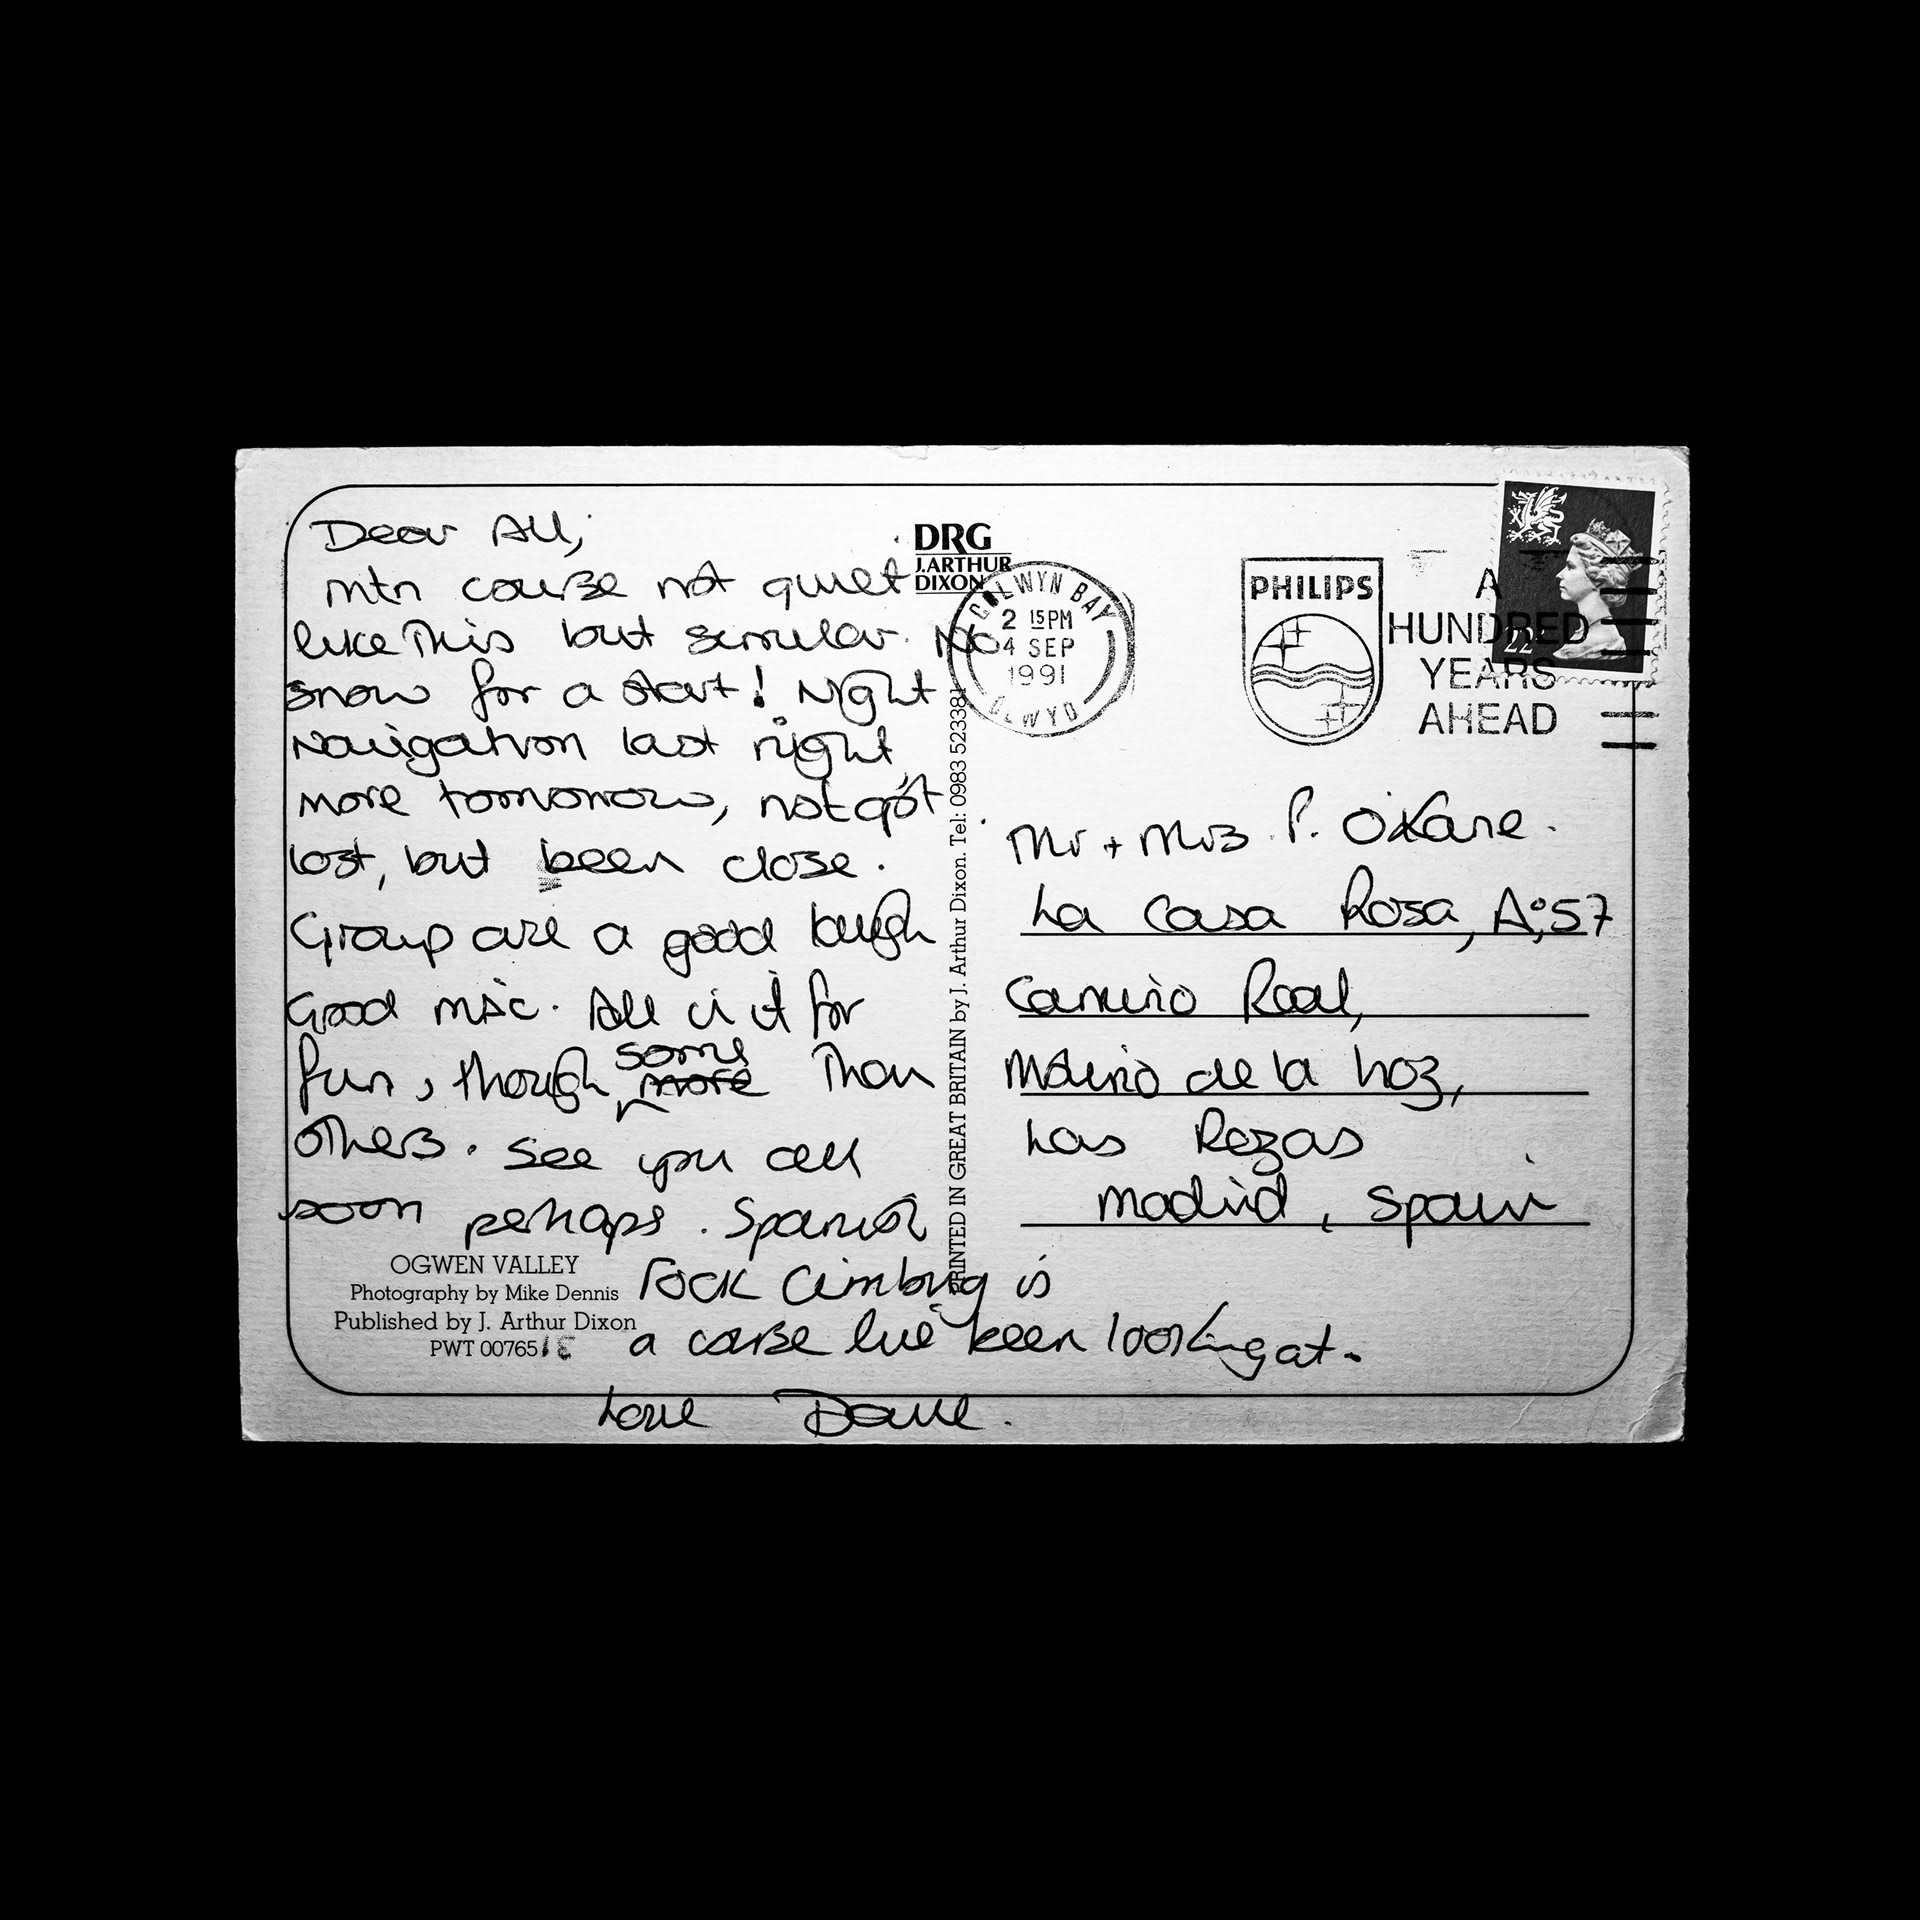 Dear All,
mtn course not quiet
like This but similar. No
snow for a start! Night
Navigation last night,
more tomorrow, not got
lost, but been close.
Group are a good laugh
Good misc. All in it for
fun, though some more Than
others. See you all
soon perhaps. Spanish
rock Climbing is
a course I've been looking at.
Love Dave.
OGWEN VALLEY
Photography by Mike Dennis
Published by J. Arthur Dixon
PWT 00765
DRG
J.ARTHUR
DIXON
PRINTED IN GREAT BRITAIN by J. Arthur Dixon. Tel: 0983 523381
COLWYN BAY
2 15PM
4 SEP
1991
CLWYD
PHILIPS
A
HUNDRED
YEARS
AHEAD
22
Mr + Mrs P. O'Kane.
La Casa Rosa, A°,57
Camino Real,
Molino de la Hoz,
Las Rozas
Madrid, Spain